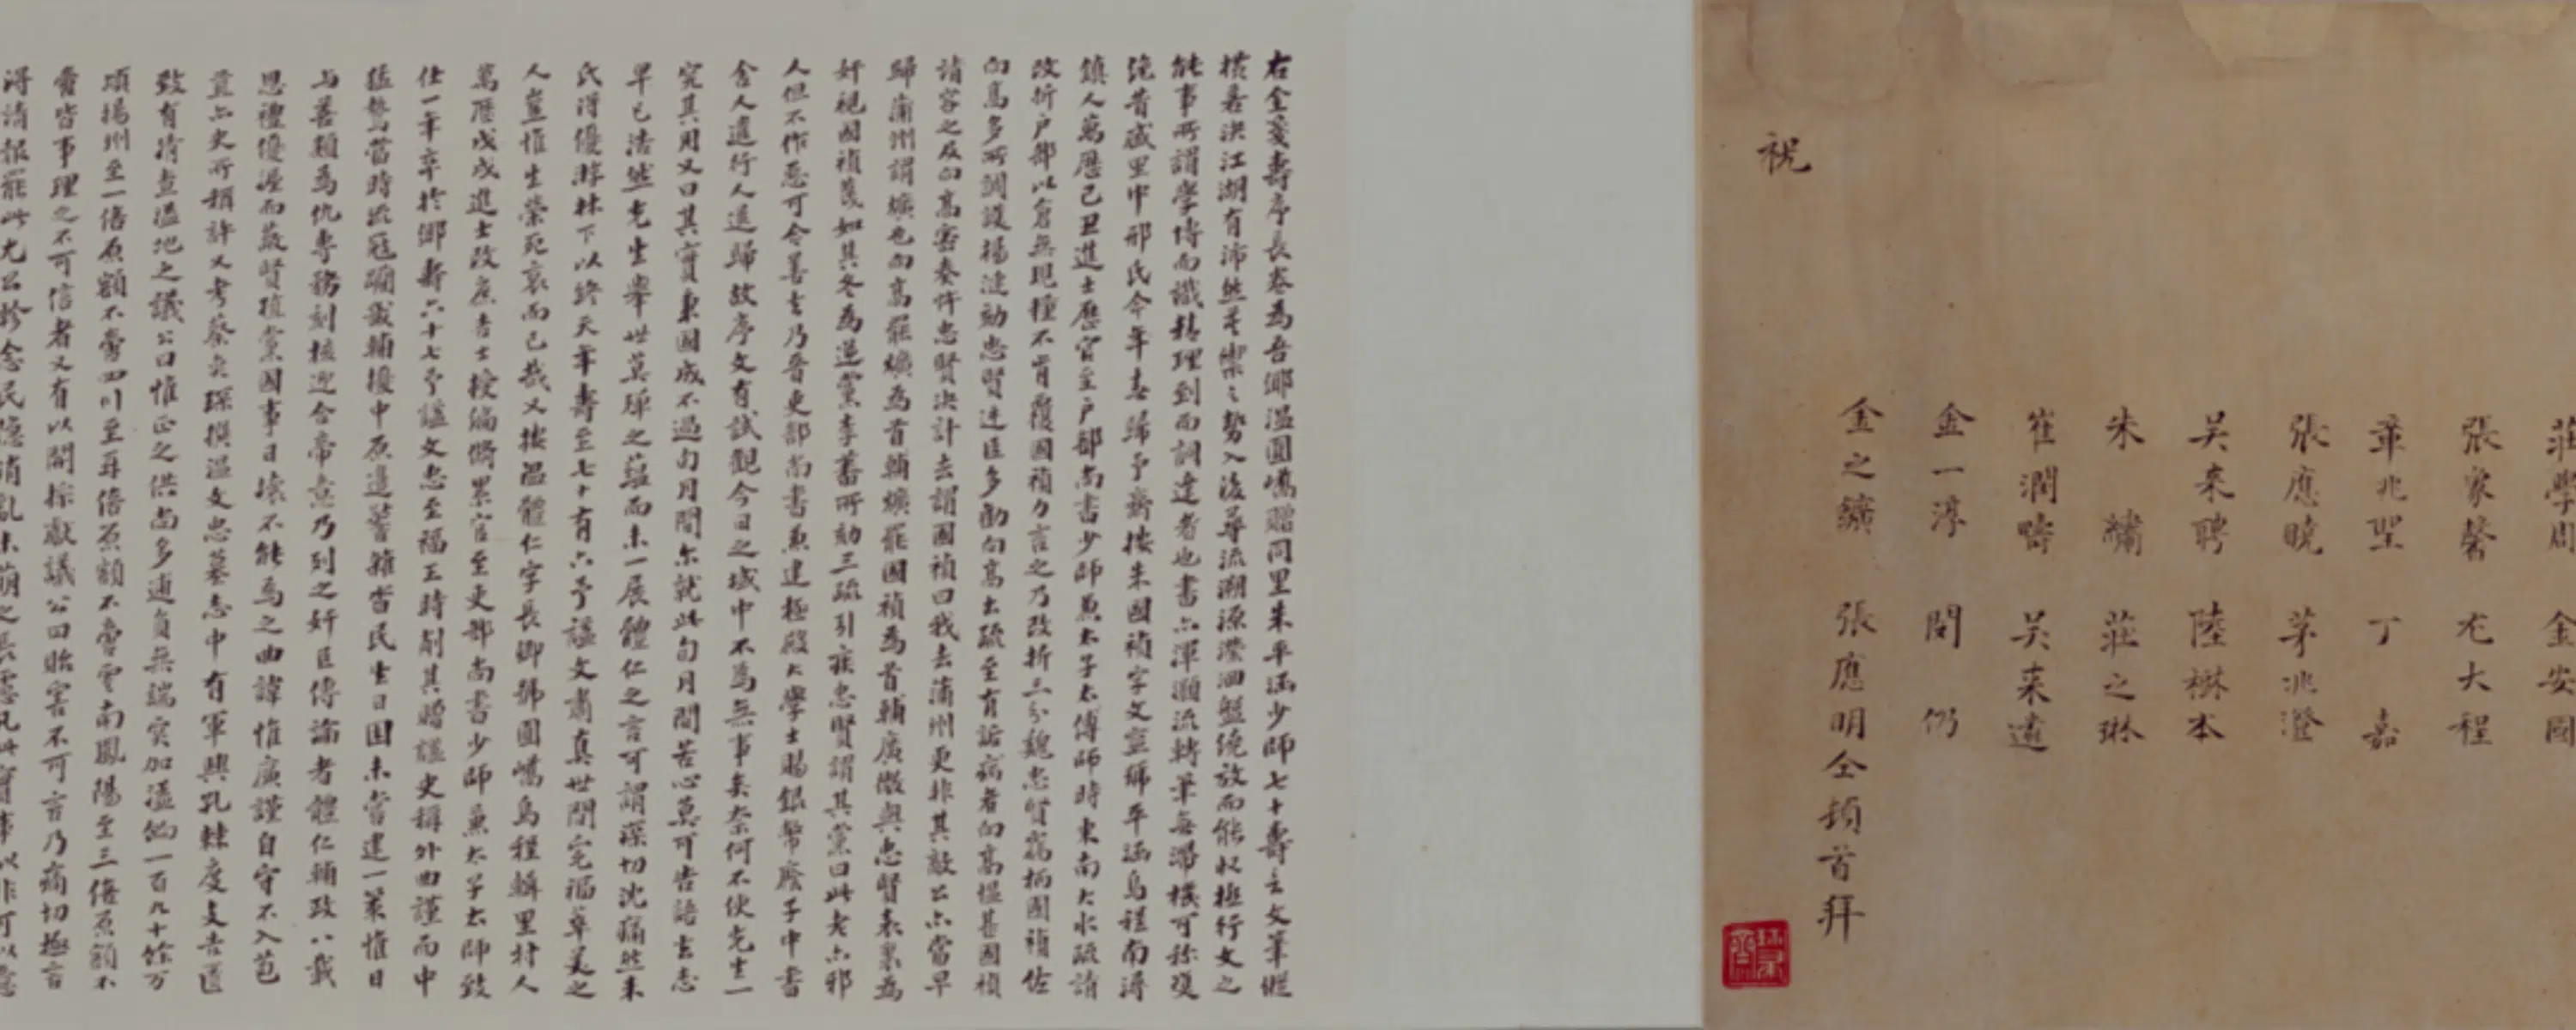 莊學周 金安國
張家馨 尤大程
章兆聖 丁嘉
張應曉 茅兆澄
吳來聘 陸楙本
朱繡 莊之琳
崔潤疇 吳來遠
金一淳 閻仍
金之鑛 張應明仝頓首拜
祝
右金箋壽序長卷為吾鄉溫圓嶠贈同里朱平涵少師七十壽之文筆縱
橫若決江湖有沛然莫禦之勢入後尋流溯源瀠洄盤繞放而能収極行文之
能事所謂學博而識精理到而詞達者也書亦渾灝流轉筆無滯機可称雙
絕昔藏里中邢氏今年春歸予齋按朱國禎字文寧號平涵烏程南潯
鎮人萬曆己丑進士歷官至戶部尚書少師兼太子太傅師時東南大水疏請
改折戶部以倉無見糧不肯覆國禎力言之乃改折三分魏忠賢竊柄國禎佐
向高多所調護楊漣劾忠賢廷臣多勸向高出疏至有詬病者向高慍甚國禎
請容之及向高密奏忤忠賢決計去謂國禎曰我去蒲州更非其敵公亦當早
歸蒲州謂爌也向高罷爌為首輔爌罷國禎為首輔廣微與忠賢表裏為
奸視國禎蔑如其冬為逆黨李蕃所劾三疏引疾忠賢謂其黨曰此老亦邪
人但不作惡可令善去乃晉吏部尚書兼建極殿大學士賜銀幣廕子中書
舍人遣行人送歸故序文有試觀今日之域中不為無事矣奈何不使先生一
究其用又曰其實秉國成不過旬月間尔就此旬月間苦心莫可告語去志
早已浩然先生舉世莫殫之蘊而未一展體仁之言可謂深切沈痛然朱
氏得優游林下以終天年壽至七十有六予諡文肅真世間完福草美之
人豈惟生榮死哀而已哉又按溫體仁字長卿號圓嶠烏程輯里村人
萬曆戊戌進士改庶吉士授編脩累官至吏部尚書少師兼太子太師致
仕一年卒於鄉壽六十七予諡文忠至福王時削其贈諡史稱外曲謹而中
猛鷙當時流冠躪畿輔擾中原邊警雜沓民生日困未嘗建一策惟日
与善類為仇專務刻核迎合帝意乃列之奸臣傳論者體仁輔政八載
恩禮優渥而蔽賢植黨國事日壞不能為之曲諱惟廉謹自守不入苞
苴亦史所稱許又考蔡奕琛撰溫文忠墓志中有軍興孔棘度支告匱
致有清查溫池之議公曰惟正之供尚多逋負無端突加溢餉一百九十餘万
頃揚州至一倍原額不啻四川至再倍原額不啻雲南鳳陽至三倍原額不
啻皆事理之不可信者又有以開採獻議公曰貽害不可言乃痛切極言
得請報罷此尤公軫念民隱